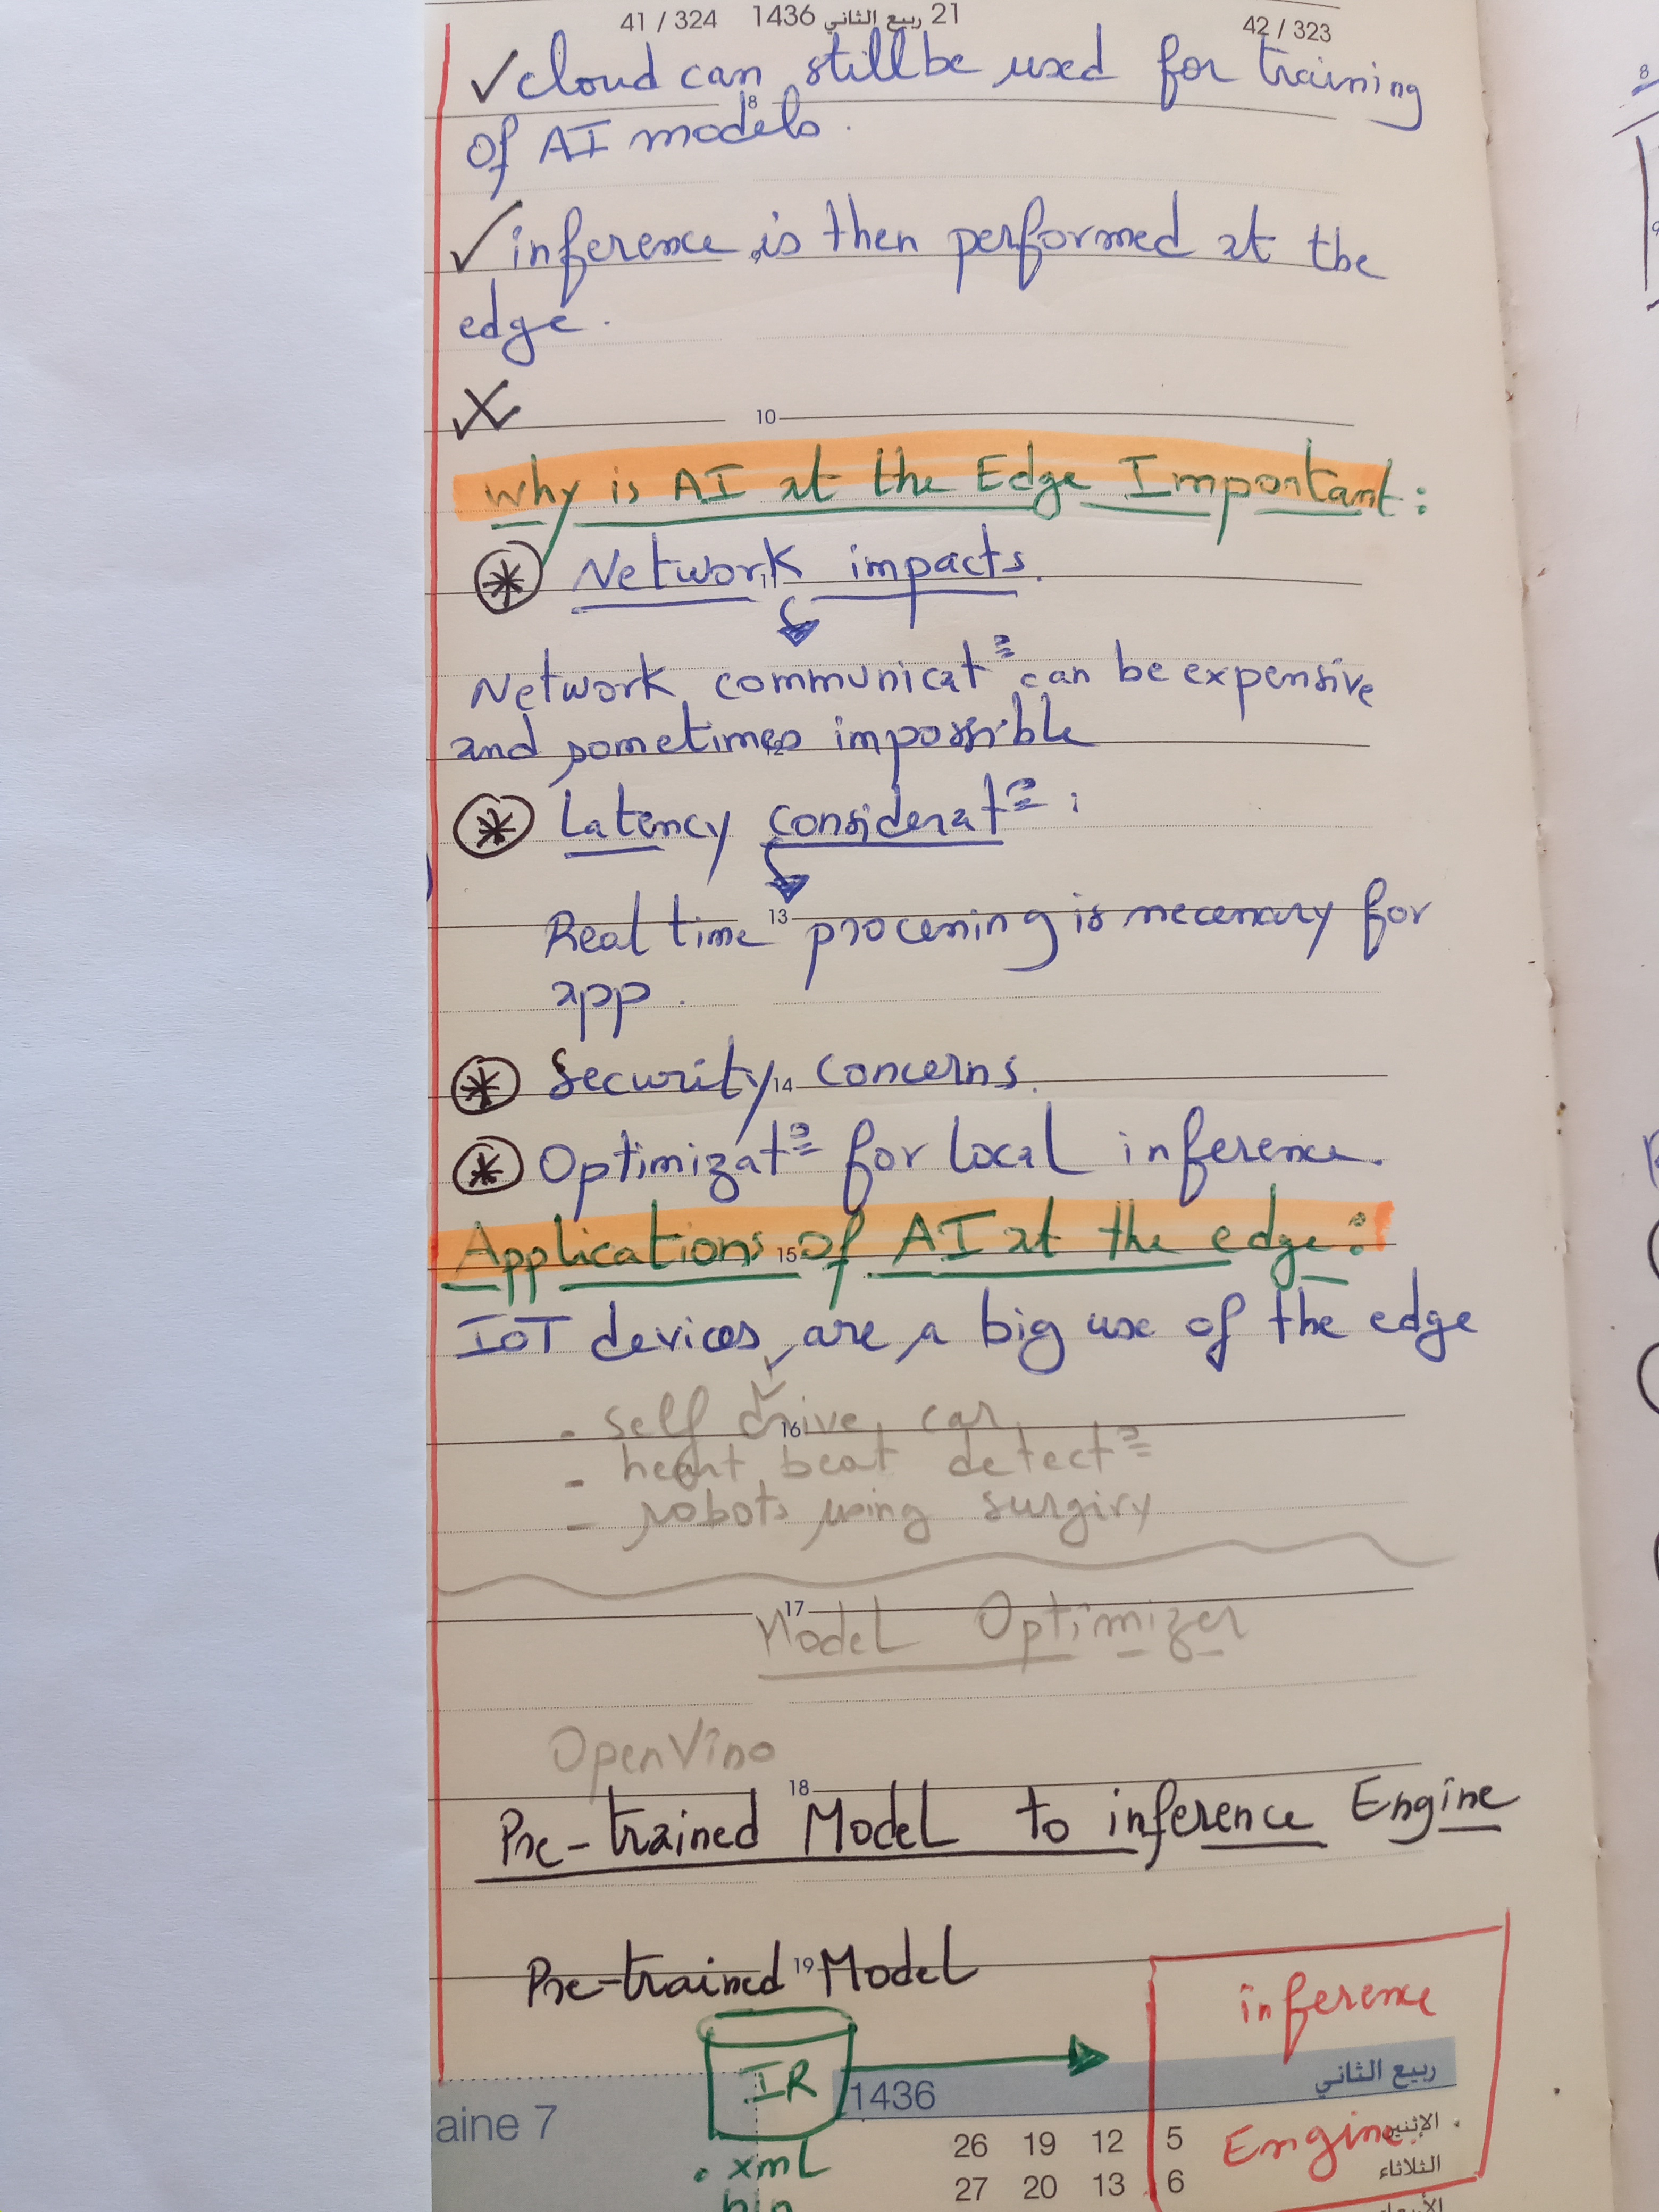 41 / 324 21 ربيع الثاني 1436 42 / 323
✓ cloud can still be used for training
8
of AI models.
✓ inference is then performed at the
9
edge.
X
10
Why is AI at the Edge Important:
* Network impacts.
11
Network communicat° can be expensive
and sometimes impossible
12
* Latency considerat° :
Real time processing is necessary for
13
app.
* Security concerns.
14
* Optimizat° for local inference.
Applications of AI at the edge:
15
IoT devices are a big use of the edge
- self drive car
16
- heart beat detect°
- robots using surgiry
17
Model Optimizer
OpenVino
18
Pre-trained Model to inference Engine
Pre-trained Model
19
inference
IR
ربيع الثاني
1436
aine 7
26 19 12 5 الإثنين
Engine
.xml
27 20 13 6 الثلاثاء
bin